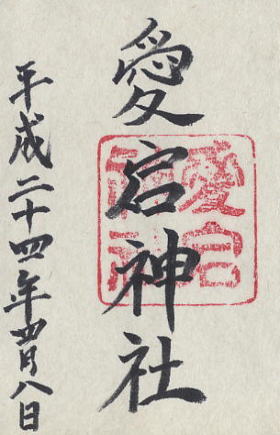 愛宕神社
愛宕神社
平成二十四年四月八日